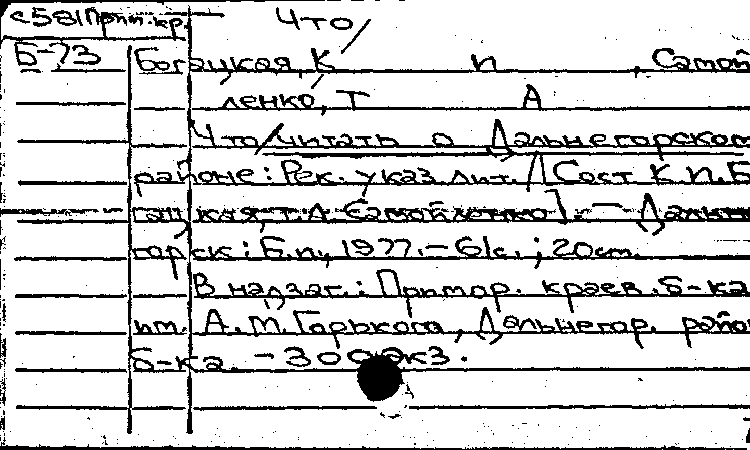 с58(Прим.кр. Что/
Б-73 Богацкая, К П , Самой
ленко, Т А
Что/читать о Дальнегорском
районе: Рек. указ. лит. / [Сост К П. Б
гацкая, Т. А. Самойленко]. — Дальне
горск: Б.п., 1977. – 61с. ; 20см.
В надзаг.: Примор. краев. б-ка
им. А. М. Горького, Дальнегор. район
б-ка – 300экз.